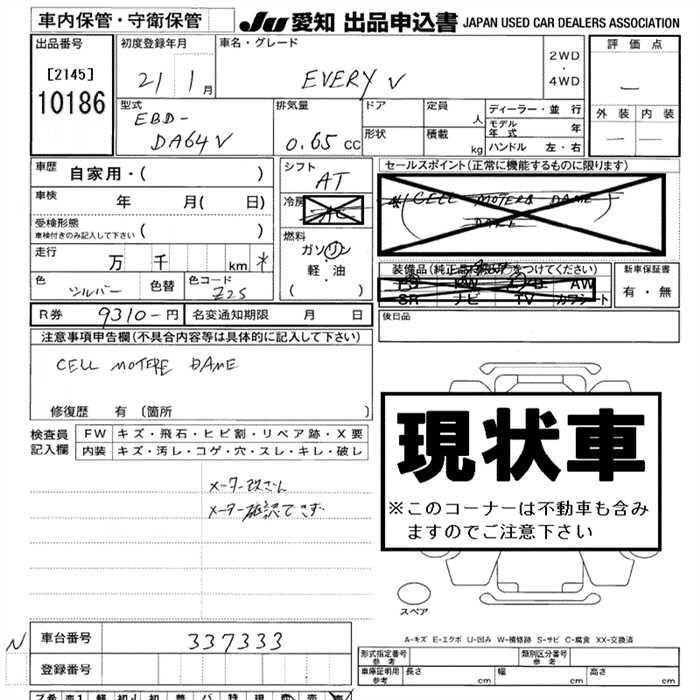 車内保管・守衛保管
JU 愛知 出品申込書 JAPAN USED CAR DEALERS ASSOCIATION
出品番号
[2145]
10186
初度登録年月
21 1月
車名・グレード
EVERY V
2WD
・
4WD
評価点
—
外装 内装
— —
型式
EBD-
DA64V
排気量
0.65 cc
ドア
定員 人
形状
積載 kg
ディーラー・並行
モデル年式 年
ハンドル 左・右
車歴
自家用・( )
車検
年 月( 日)
受検形態
車検付きのみ記入して下さい ( )
走行
万 千 km *
色
シルバー
色替
色コード
Z2S
シフト
AT
冷房
AC
燃料
ガソリン
・
軽・油
・
( )
セールスポイント(正常に機能するものに限ります)
CELL MOTERE DAME
装備品(純正品 をつけてください)
PS PW AW
SR ナビ TV カワシート
新車保証書
有・無
R券 9310-円
名変通知期限 月 日
後日品
注意事項申告欄(不具合内容等は具体的に記入して下さい)
CELL MOTERE DAME
修復歴 有 〔箇所 〕
検査員
記入欄
FW キズ・飛石・ヒビ割・リペア跡・X要
内装 キズ・汚レ・コゲ・穴・スレ・キレ・破レ
メーター改ざん
メーター確認できず
現状車
※このコーナーは不動車も含み
ますのでご注意下さい
スペア
A-キズ E-エクボ U-凹み W-補修跡 S-サビ C-腐食 XX-交換済
N
車台番号
337333
登録番号
形式指定番号
参考
類別区分番号
参考
車庫証明用
参考
長さ cm 幅 cm 高さ cm